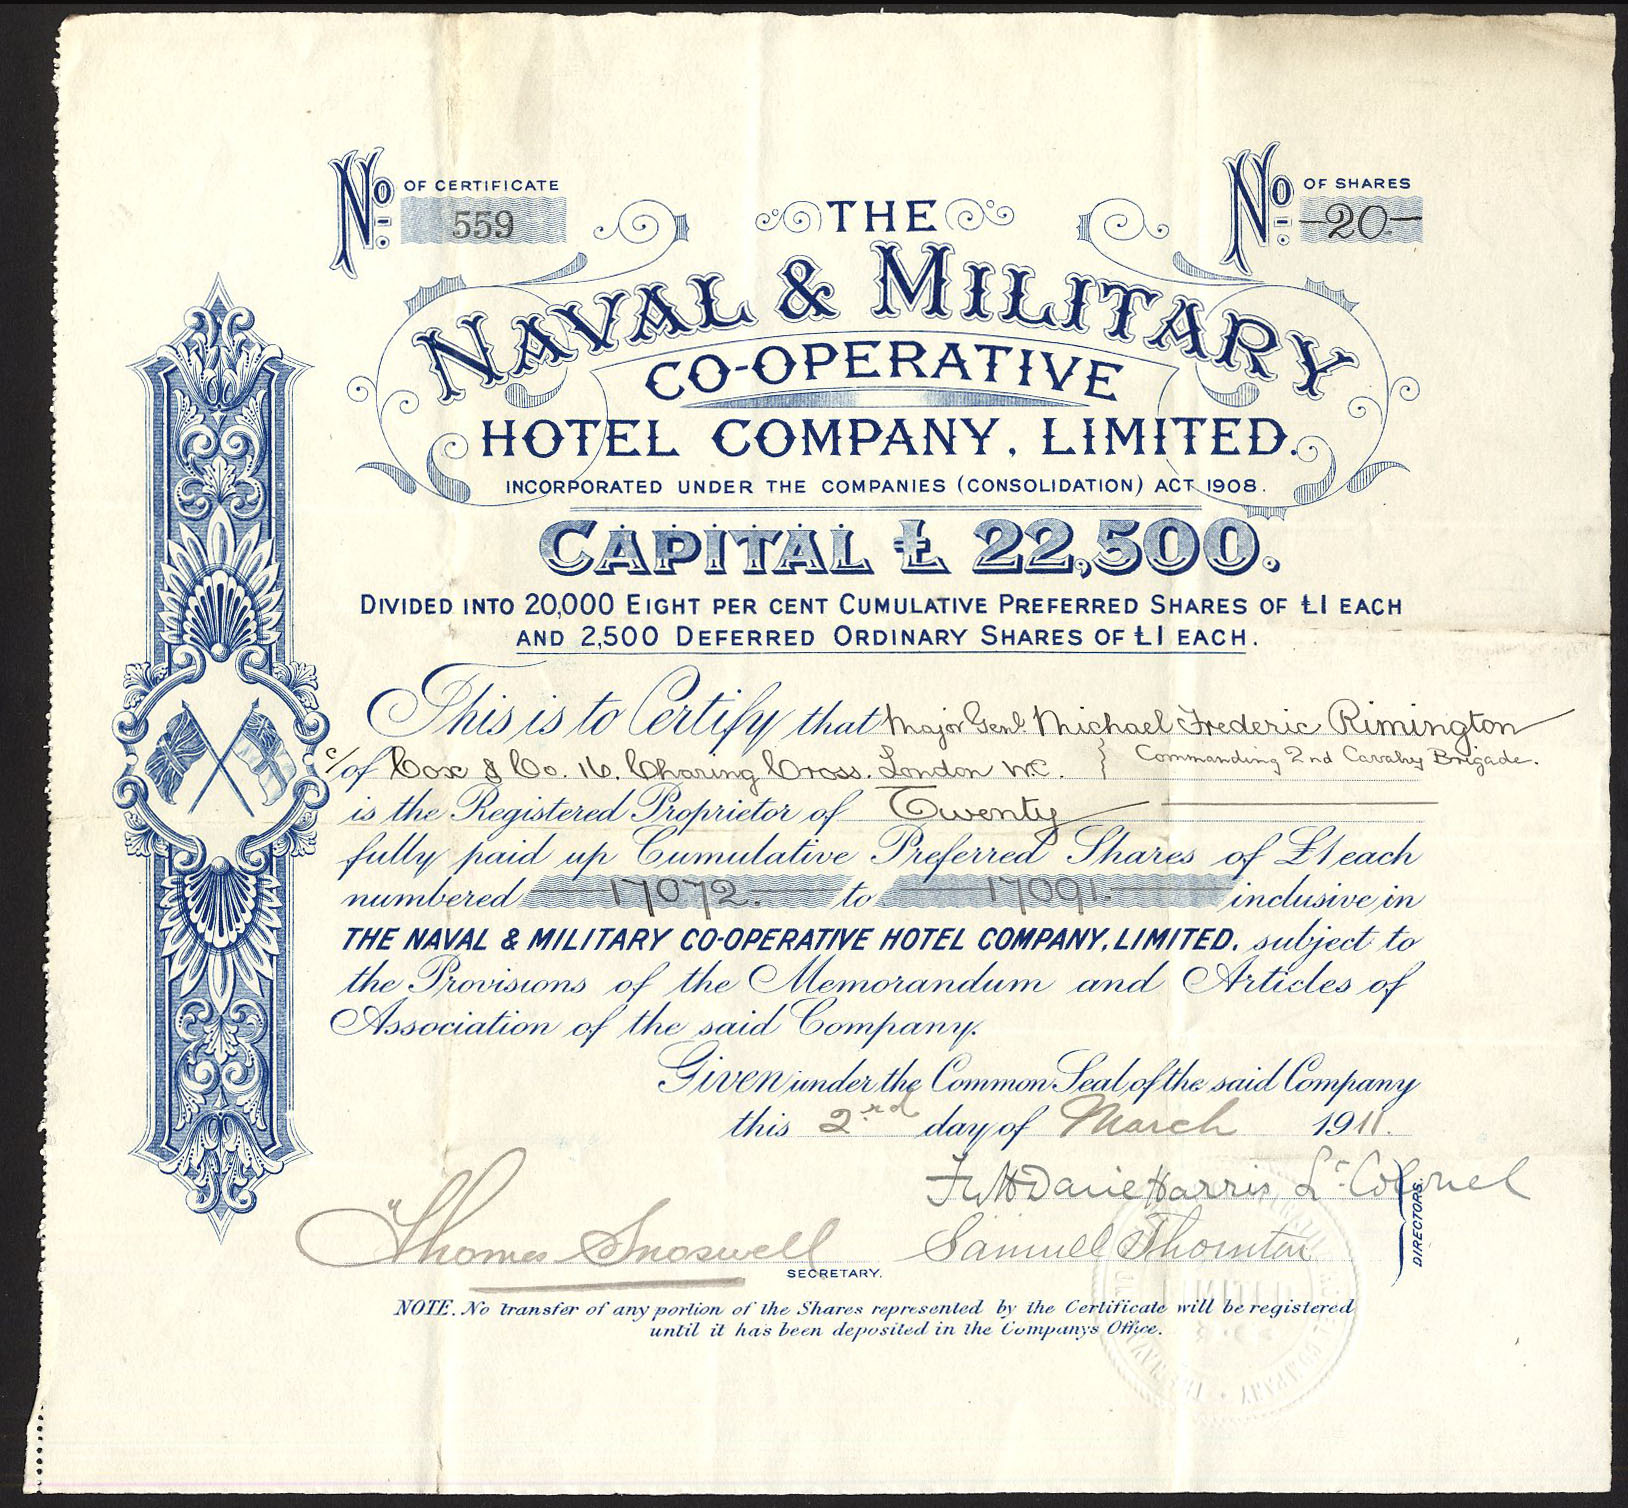 No OF CERTIFICATE 559
No OF SHARES -20-
THE
NAVAL & MILITARY
CO-OPERATIVE
HOTEL COMPANY, LIMITED.
INCORPORATED UNDER THE COMPANIES (CONSOLIDATION) ACT 1908.
CAPITAL £ 22,500.
DIVIDED INTO 20,000 EIGHT PER CENT CUMULATIVE PREFERRED SHARES OF £1 EACH
AND 2,500 DEFERRED ORDINARY SHARES OF £1 EACH.
This is to Certify that Major Genl. Michael Frederic Rimington
c/ of Cox & Co. 16. Charing Cross. London W.C. } Commanding 2nd Cavalry Brigade.
is the Registered Proprietor of Twenty
fully paid up Cumulative Preferred Shares of £1 each
numbered 17072. to 17091. inclusive in
THE NAVAL & MILITARY CO-OPERATIVE HOTEL COMPANY, LIMITED. subject to
the Provisions of the Memorandum and Articles of
Association of the said Company.
Given under the Common Seal of the said Company
this 2nd day of March 1911.
Davie Harris, Lt. Colonel
Thomas Snoswell
SECRETARY.
Samuel Thornton
DIRECTORS.
NOTE. No transfer of any portion of the Shares represented by the Certificate will be registered
until it has been deposited in the Companys Office.
LIMITED